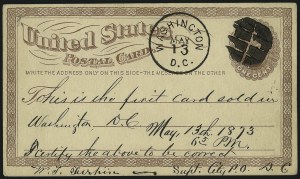 United States
POSTAL CARD
WRITE THE ADDRESS ONLY ON THIS SIDE—THE MESSAGE ON THE OTHER
WASHINGTON
MAY
13
D.C.
This is the first card sold in
Washington D C May, 13th 1873
I certify the above to be correct
Supt. City, P.O. D C